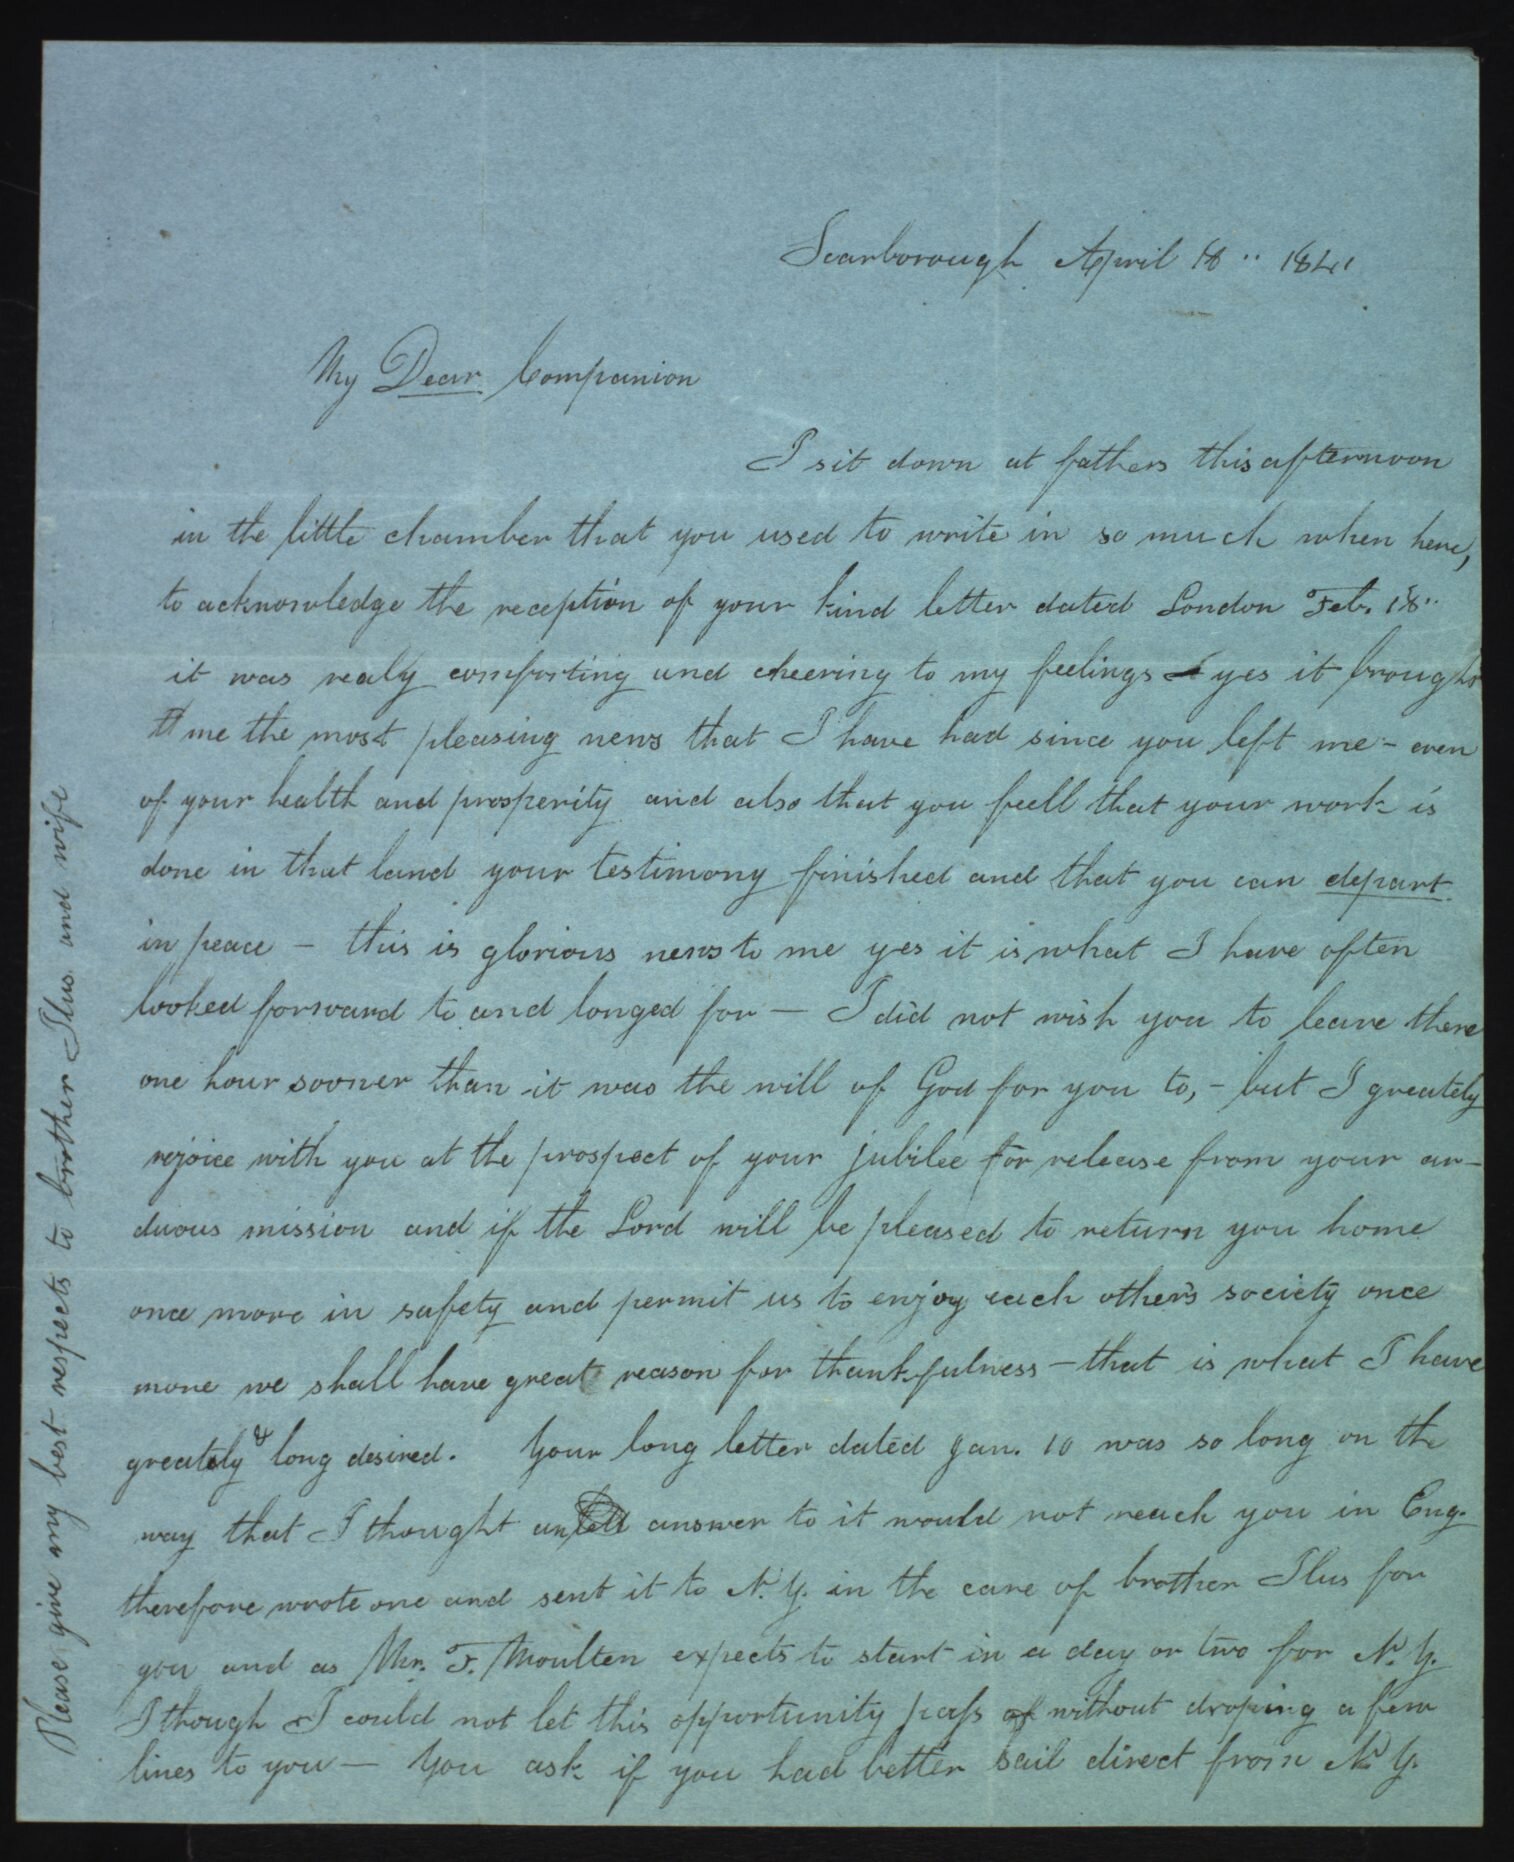 Scarborough April 18" 1841
My Dear Companion
I sit down at fathers this afternoon
in the little chamber that you used to write in so much when here,
to acknowledge the reception of your kind letter dated London Feb. 18"
it was realy comforting and cheering to my feelings yes it brought
me the most pleasing news that I have had since you left me – even
of your health and prosperity and also that you feell that your work is
done in that land your testimony finished and that you can depart
in peace – this is glorious news to me yes it is what I have often
looked forward to and longed for – I did not wish you to leave there
one hour sooner than it was the will of God for you to, – but I greately
rejoice with you at the prospect of your jubilee for release from your ar-
duous mission and if the Lord will be pleased to return you home
once more in safety and permit us to enjoy each other's society once
more we shall have great reason for thankfulness – that is what I have
greatly & long desired. Your long letter dated Jan. 10 was so long on the
way that I thought an answer to it would not reach you in Eng.
therefore wrote one and sent it to N.Y. in the care of brother Ilus for
you and as Mr. F. Moulten expects to start in a day or two for N.Y.
I though I could not let this opportunity pass without droping a few
lines to you – You ask if you had better sail direct from N.Y.
Please give my best respects to brother Ilus and wife